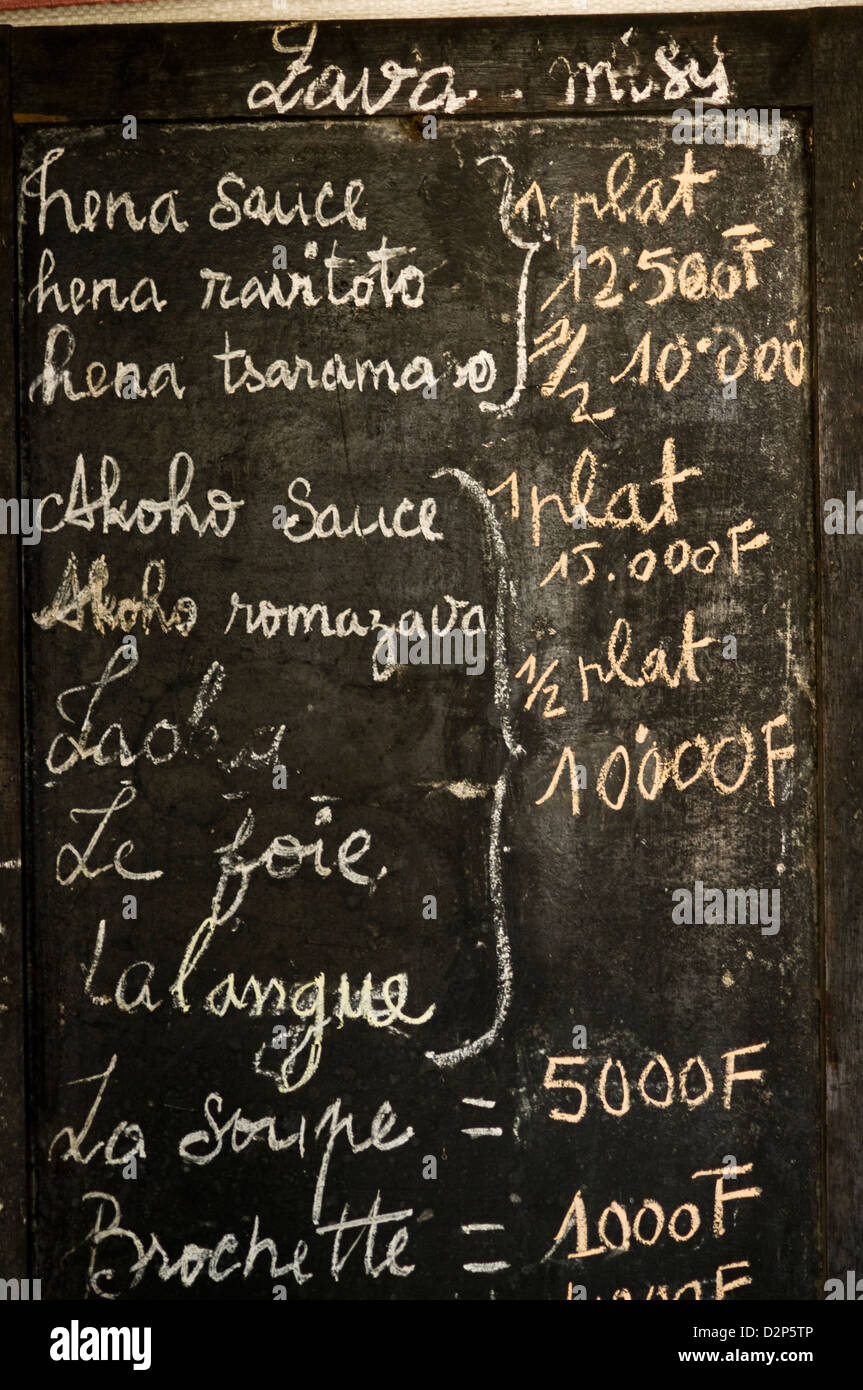 Zava - misy
hena sauce
hena ravitoto
hena tsaramaso
1 plat
12.500F
1/2 10.000
Akoho sauce
Akoho romazava
Laoka
Le foie
La langue
1 plat
15.000F
1/2 plat
10000F
La soupe = 5000F
Brochette = 1000F
alamy
Image ID: D2P5TP
www.alamy.com